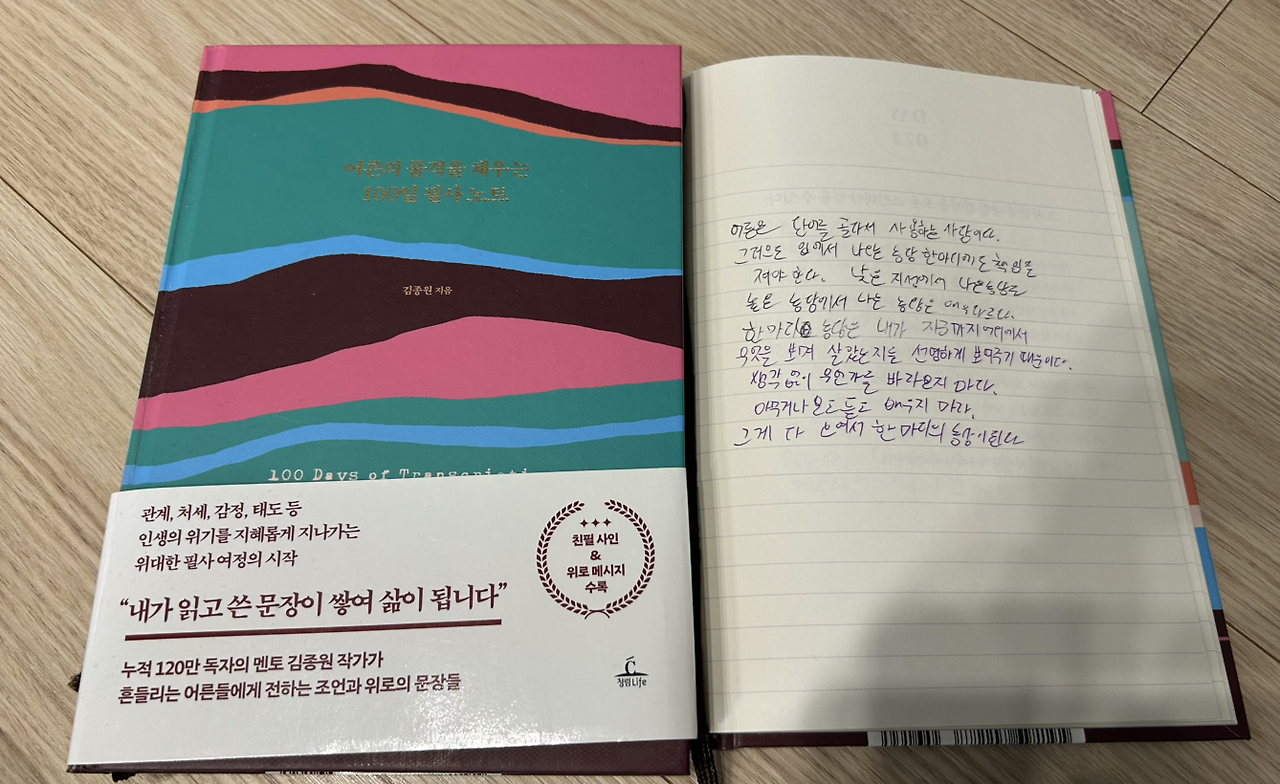 어른의 품격을 채우는
100일 필사 노트
김종원 지음
100 Days of
관계, 처세, 감정, 태도 등
인생의 위기를 지혜롭게 지나가는
위대한 필사 여정의 시작
“내가 읽고 쓴 문장이 쌓여 삶이 됩니다”
누적 120만 독자의 멘토 김종원 작가가
흔들리는 어른들에게 전하는 조언과 위로의 문장들
친필 사인
&
위로 메시지
수록
청림Life
어른은 단어를 골라서 사용하는 사람이다.
입에서 나온 농담 한마디에도 책임을
져야 한다. 낮은 지성에서 나온 농담과
높은 농담에서 나온 농담은 다르다.
한마디 농담은 내가 지금까지 어디에서
무엇을 보며 살았는지를 선명하게 보여주기 때문이다.
생각 없이 무언가를 바라보지 마라.
아무거나 보고 듣고 배우지 마라.
그게 다 한마디의 농담이 된다